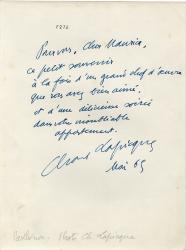 Pour vous, cher Maurice,
ce petit souvenir
à la fois d'un grand chef d'œuvre
que vous avez bien aimé,
et d'une délicieuse soirée
dans votre inoubliable
appartement.
Charles Lapicque
Mai 69
Photo Ch Lapicque